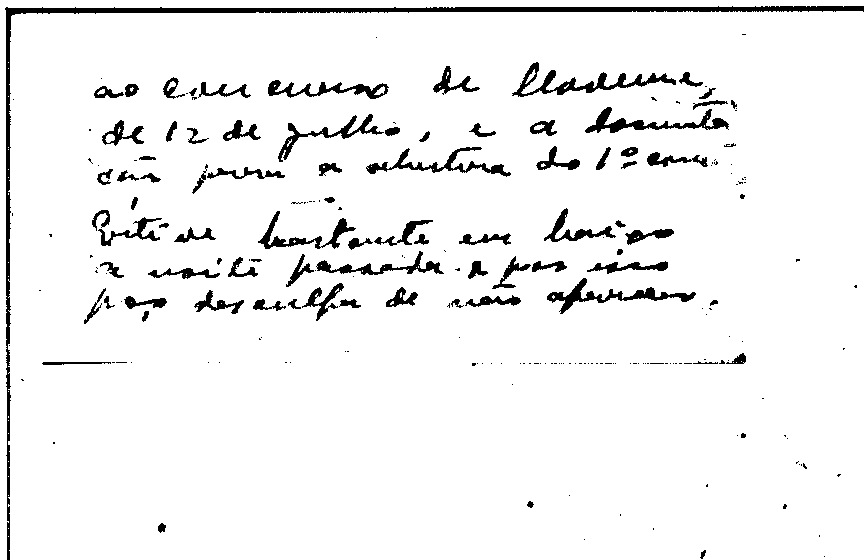 ao concurso de
de 12 de julho, e a
para a abertura do 1º
Estive bastante em baixo
a noite passada e por isso
peço desculpa de não aparecer.